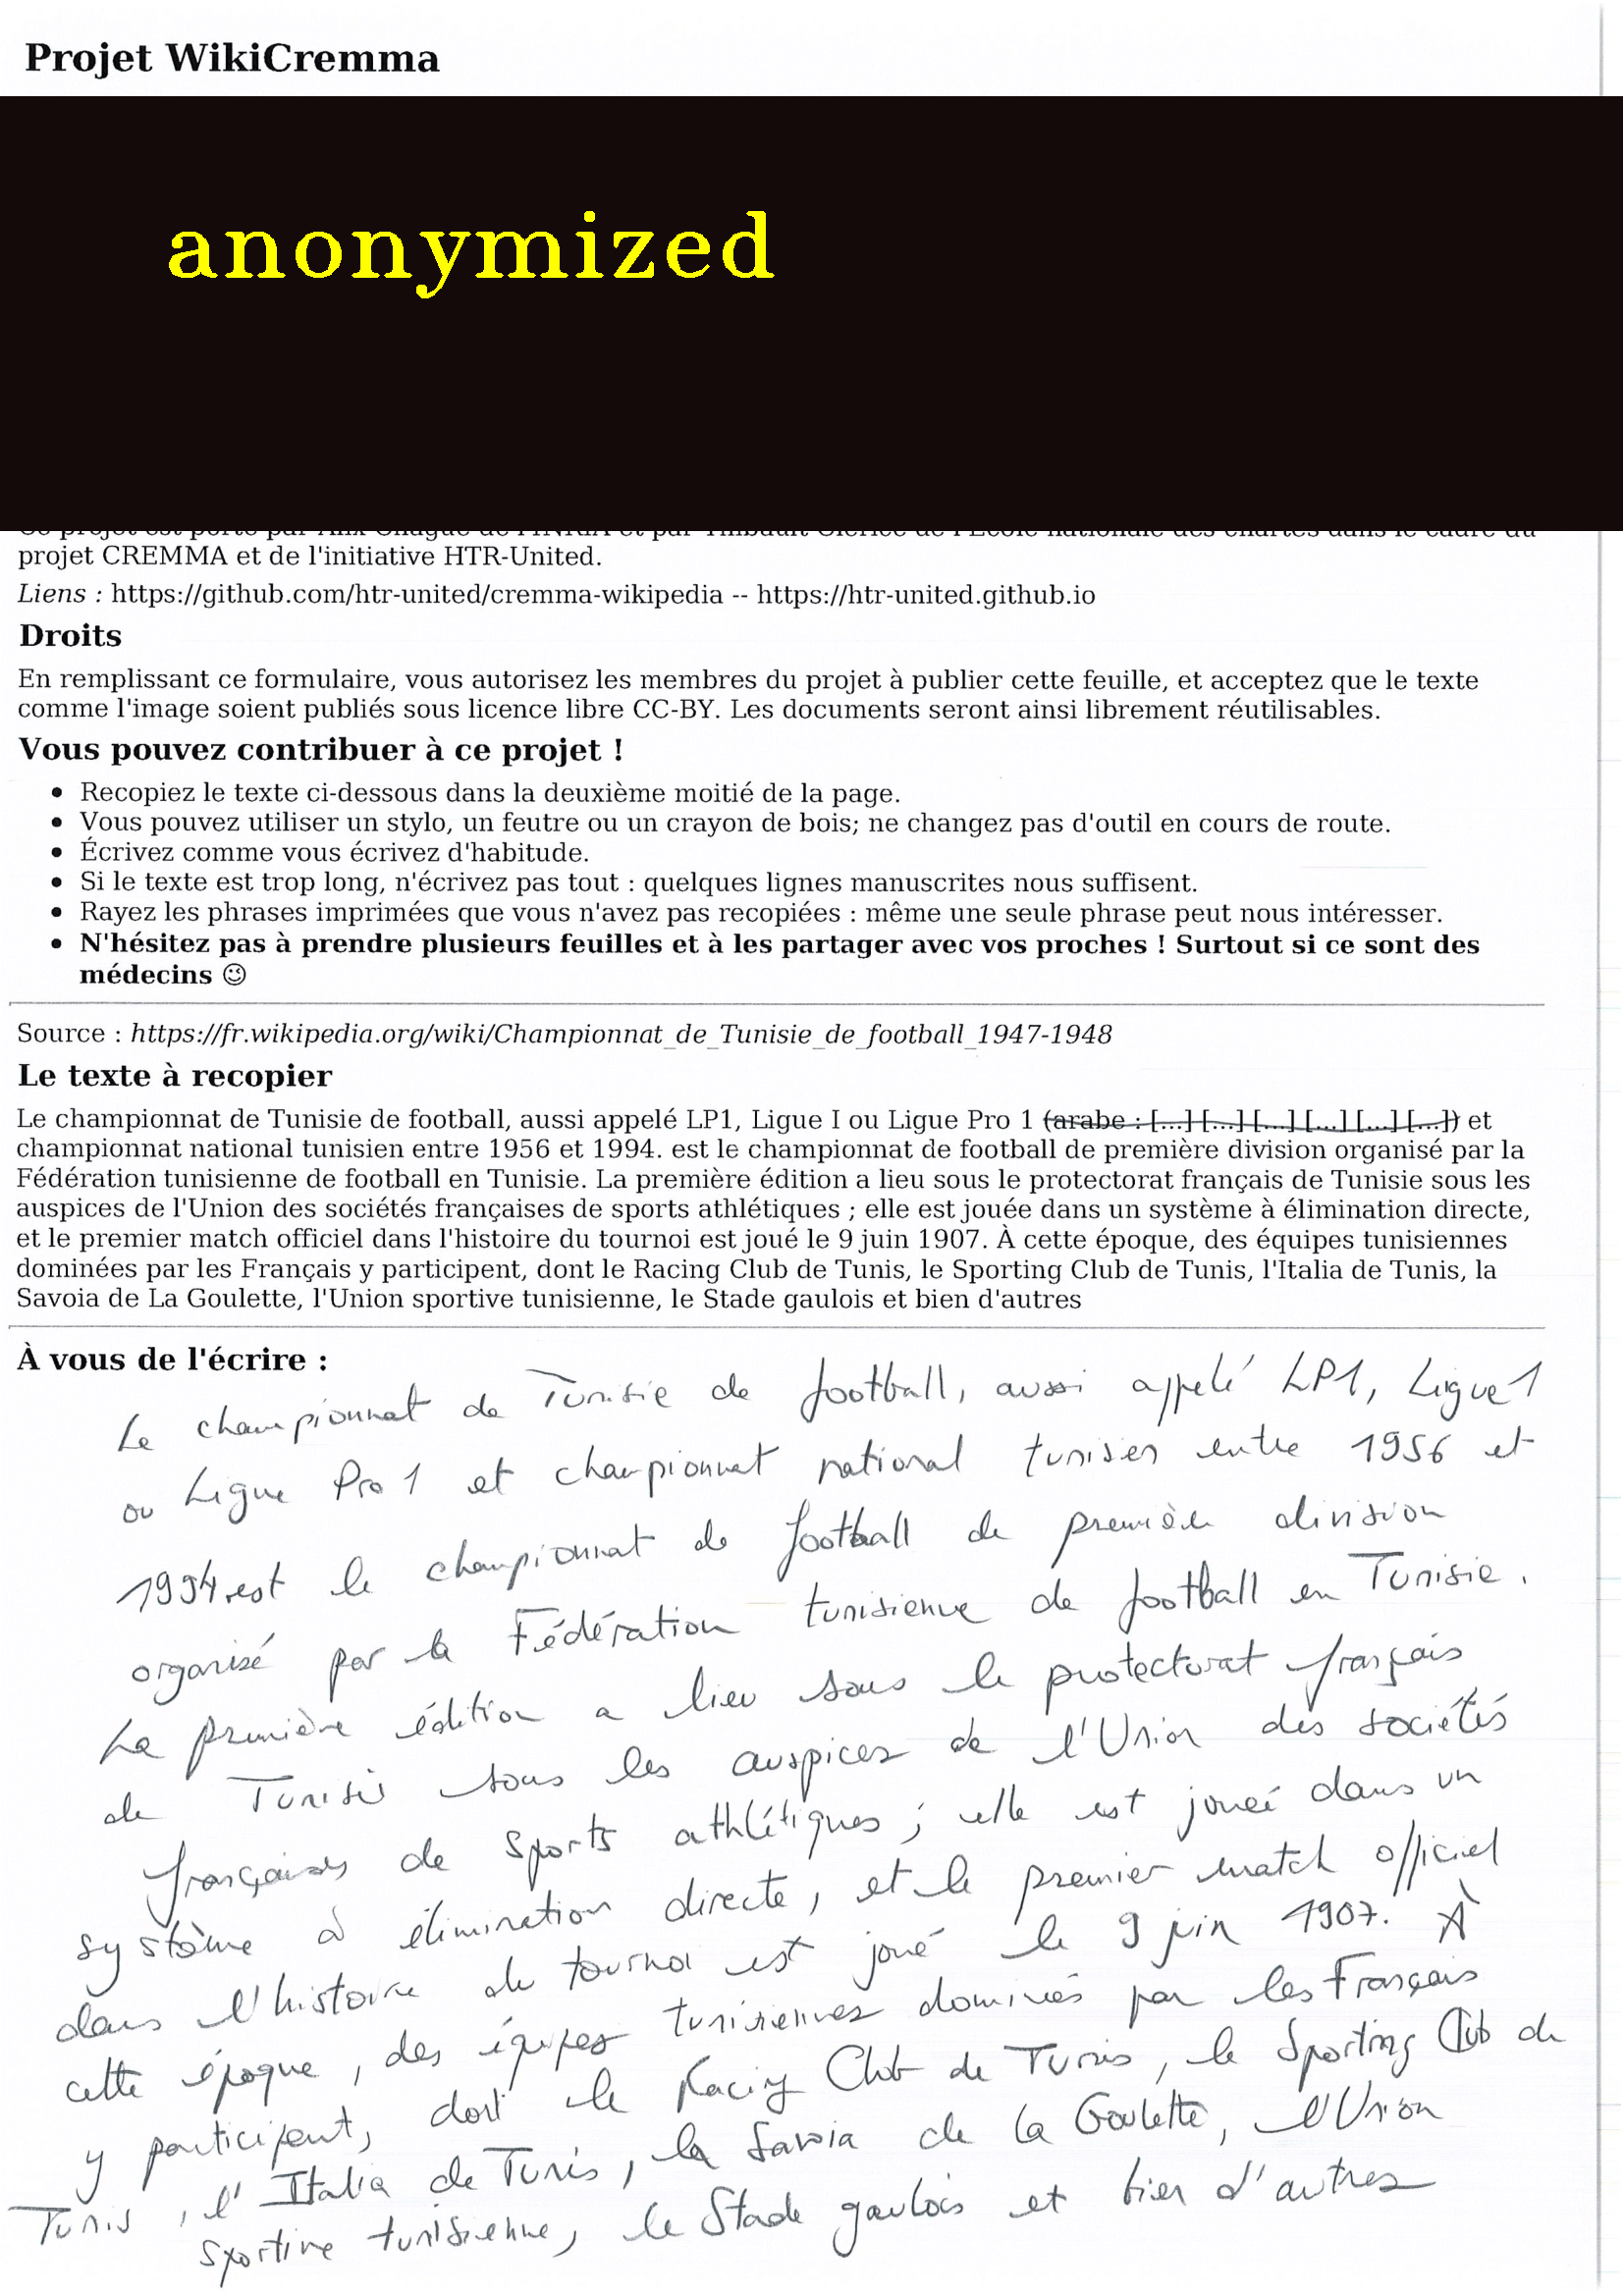 Projet WikiCremma
anonymized
projet CREMMA et de l'initiative HTR-United.
Liens : https://github.com/htr-united/cremma-wikipedia -- https://htr-united.github.io
Droits
En remplissant ce formulaire, vous autorisez les membres du projet à publier cette feuille, et acceptez que le texte
comme l'image soient publiés sous licence libre CC-BY. Les documents seront ainsi librement réutilisables.
Vous pouvez contribuer à ce projet !
• Recopiez le texte ci-dessous dans la deuxième moitié de la page.
• Vous pouvez utiliser un stylo, un feutre ou un crayon de bois; ne changez pas d'outil en cours de route.
• Écrivez comme vous écrivez d'habitude.
• Si le texte est trop long, n'écrivez pas tout : quelques lignes manuscrites nous suffisent.
• Rayez les phrases imprimées que vous n'avez pas recopiées : même une seule phrase peut nous intéresser.
• N'hésitez pas à prendre plusieurs feuilles et à les partager avec vos proches ! Surtout si ce sont des
médecins 😉
Source : https://fr.wikipedia.org/wiki/Championnat_de_Tunisie_de_football_1947-1948
Le texte à recopier
Le championnat de Tunisie de football, aussi appelé LP1, Ligue I ou Ligue Pro 1 (arabe : [...] [...] [...] [...] [...] [...]) et
championnat national tunisien entre 1956 et 1994. est le championnat de football de première division organisé par la
Fédération tunisienne de football en Tunisie. La première édition a lieu sous le protectorat français de Tunisie sous les
auspices de l'Union des sociétés françaises de sports athlétiques ; elle est jouée dans un système à élimination directe,
et le premier match officiel dans l'histoire du tournoi est joué le 9 juin 1907. À cette époque, des équipes tunisiennes
dominées par les Français y participent, dont le Racing Club de Tunis, le Sporting Club de Tunis, l'Italia de Tunis, la
Savoia de La Goulette, l'Union sportive tunisienne, le Stade gaulois et bien d'autres
À vous de l'écrire :
Le championnat de Tunisie de football, aussi appelé LP1, Ligue 1
ou Ligue Pro 1 et championnat national tunisien entre 1956 et
1994 est le championnat de football de première division
organisé par la Fédération tunisienne de football en Tunisie.
La première édition a lieu sous le protectorat français
de Tunisie sous les auspices de l'Union des sociétés
françaises de sports athlétiques ; elle est jouée dans un
système à élimination directe, et le premier match officiel
dans l'histoire de tournoi est joué le 9 juin 1907. À
cette époque, des équipes tunisiennes dominées par les Français
y participent, dont le Racing Club de Tunis, le Sporting Club de
Tunis, l'Italia de Tunis, la Savoia de la Goulette, l'Union
sportive tunisienne, le Stade gaulois et bien d'autres